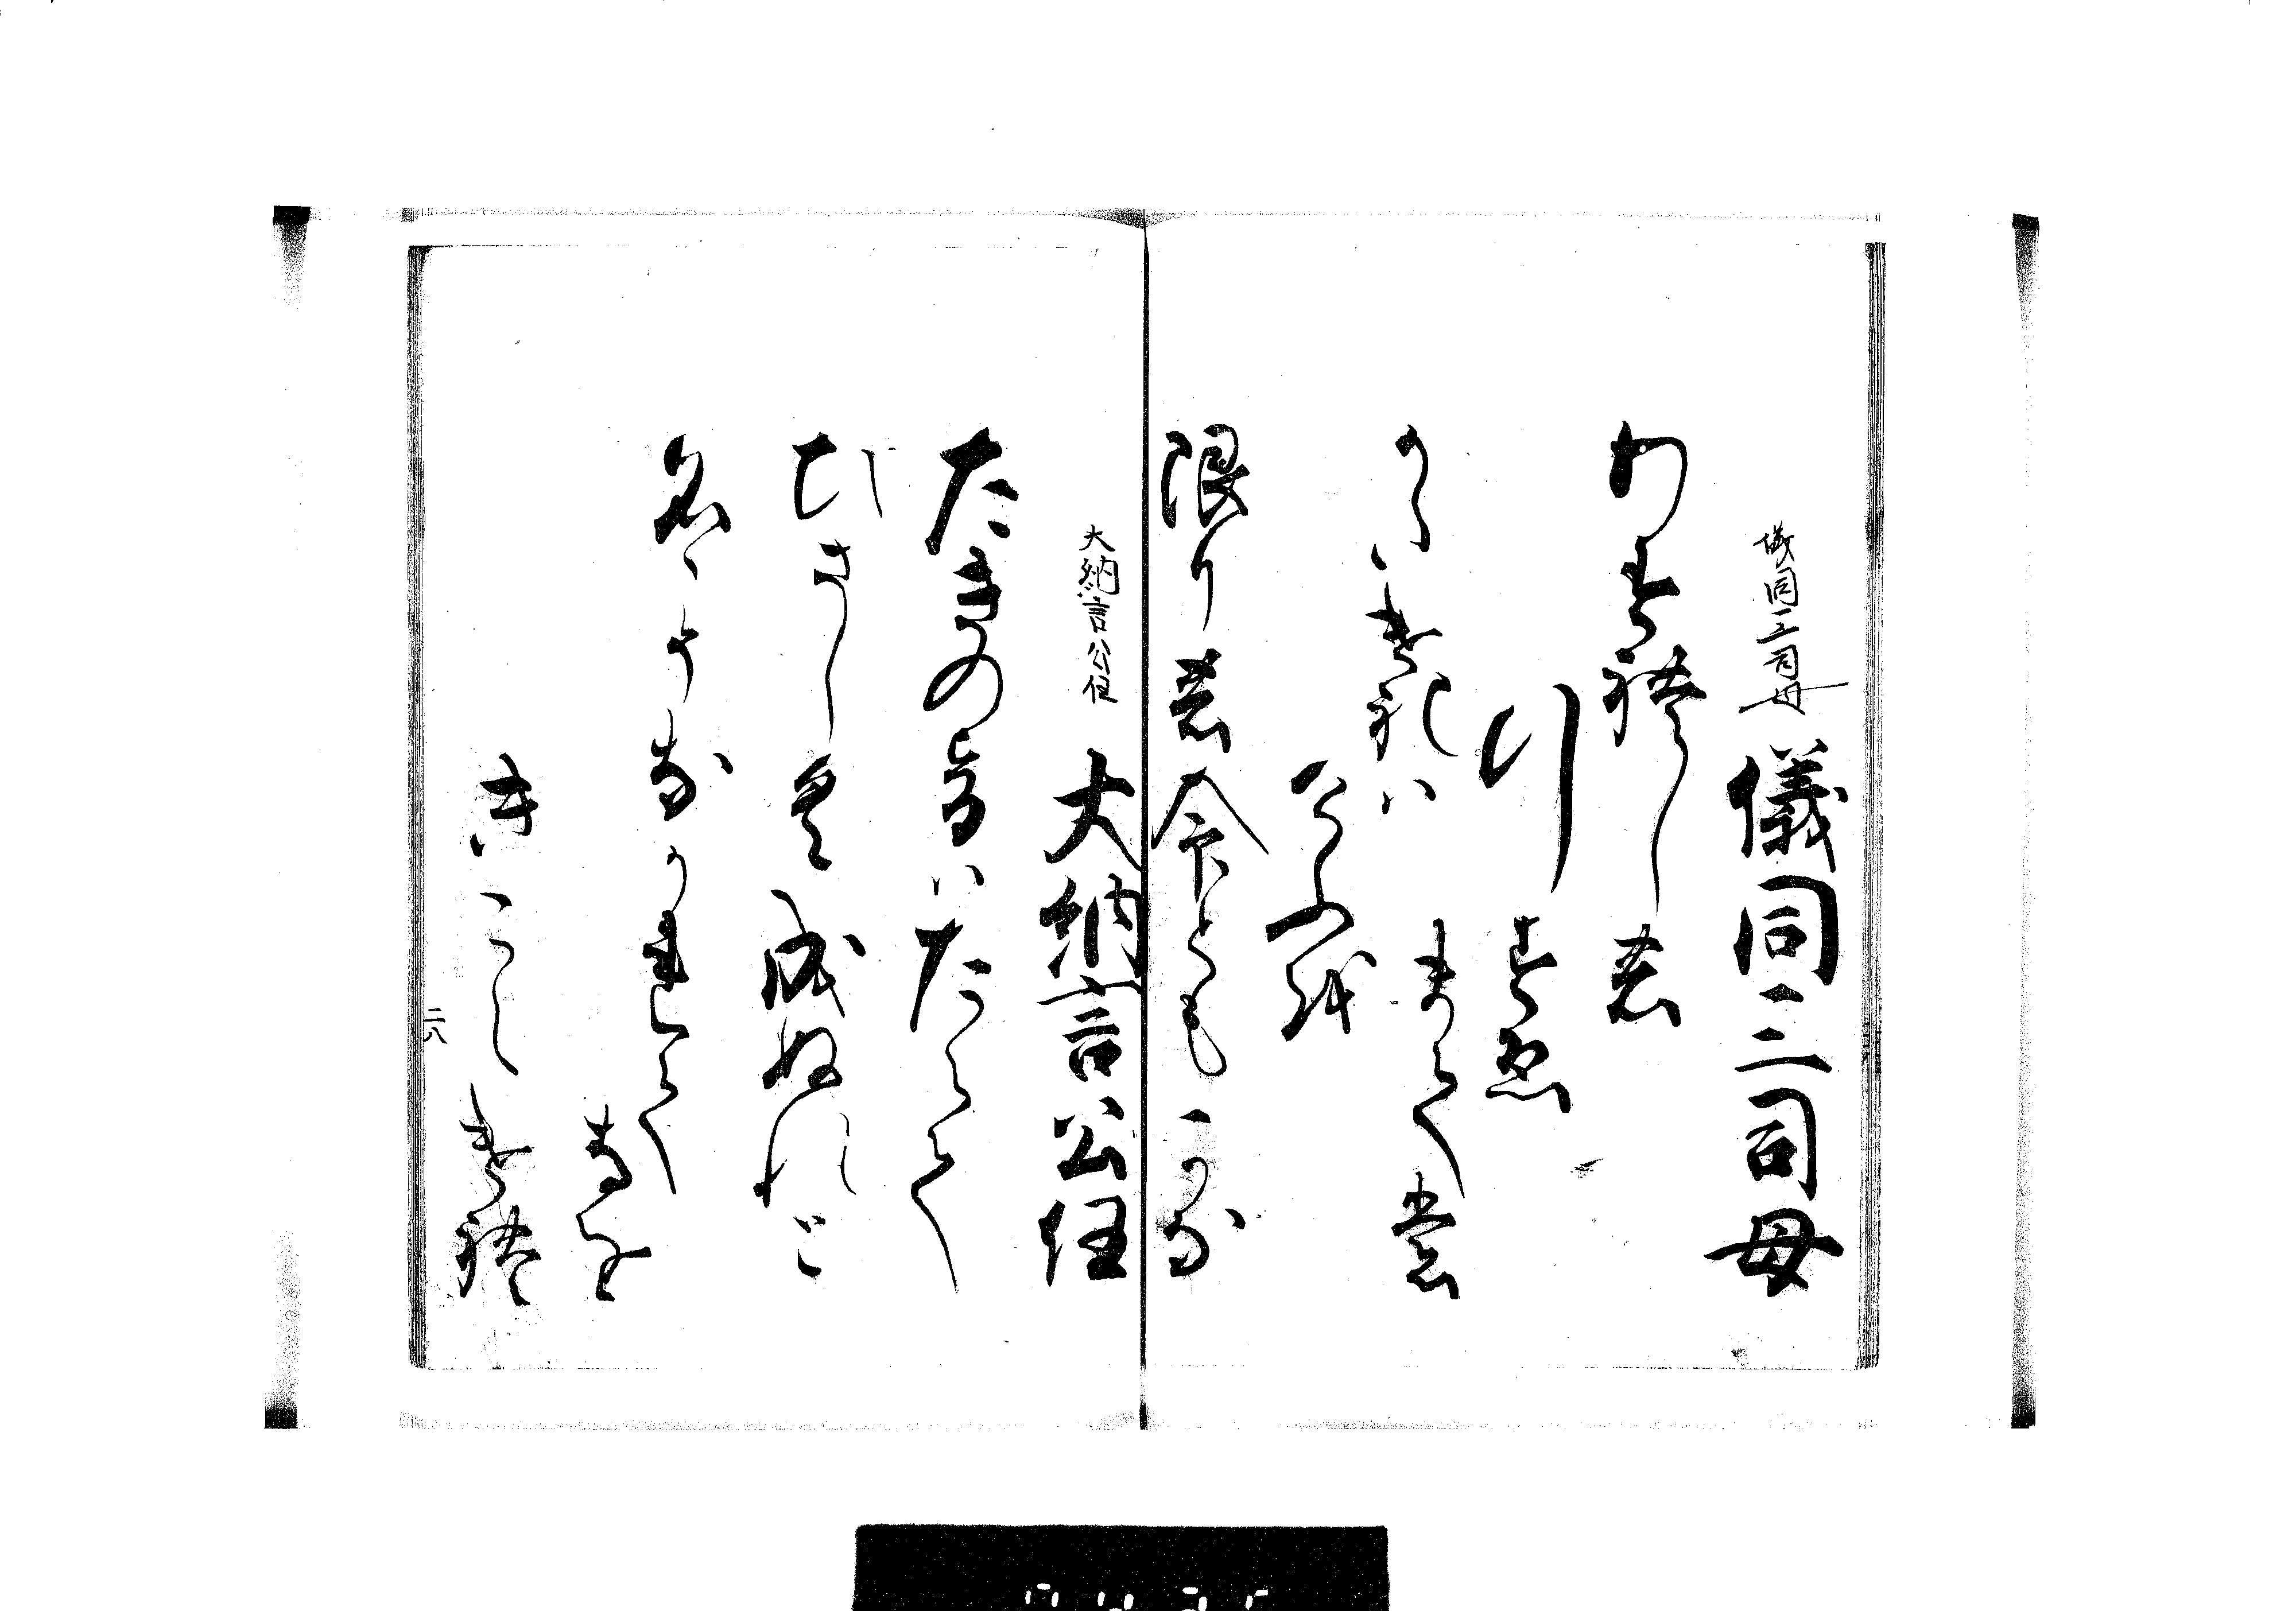 儀同三司母
儀同三司母
わすれしの
行すゑ
かたければ
まては
けふを
限りの命ともかな
大納言公任
大納言公任
たきの音はたえて
ひさしく
成ぬれと
名こそなかれて
なを
きこえけれ
二八